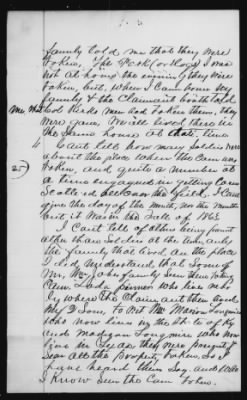 family told me that they were
taken, The Pork (or Hogs) I was
not at home the evening they were
taken, but, when I came home my
family & the Claimant both told
Col men had taken them, they
were gone, We all lived there in
the same house at that time
I Cant tell how many Soldiers were
about the place when the Corn was
taken, and quite a number at
a time engaged in getting Corn
Scattered all over the field. I Cant
give the day of the month, nor the Month
but it was in the Fall of 186
I Can't tell of others being present
other than Soldiers at the time, only
the family that lived at the place
I did understand that some of
Mr. Wm family seen them taking
Corn,
ly where the Claimant then lived
My 2 Sons, to Wit Wm Marion Longmire
who now lives in the
and Madison Longmire who now
lives in Texas they were present &
seen all the property taken, So I
have heard them Say, and while
I Know seen the Corn taken.